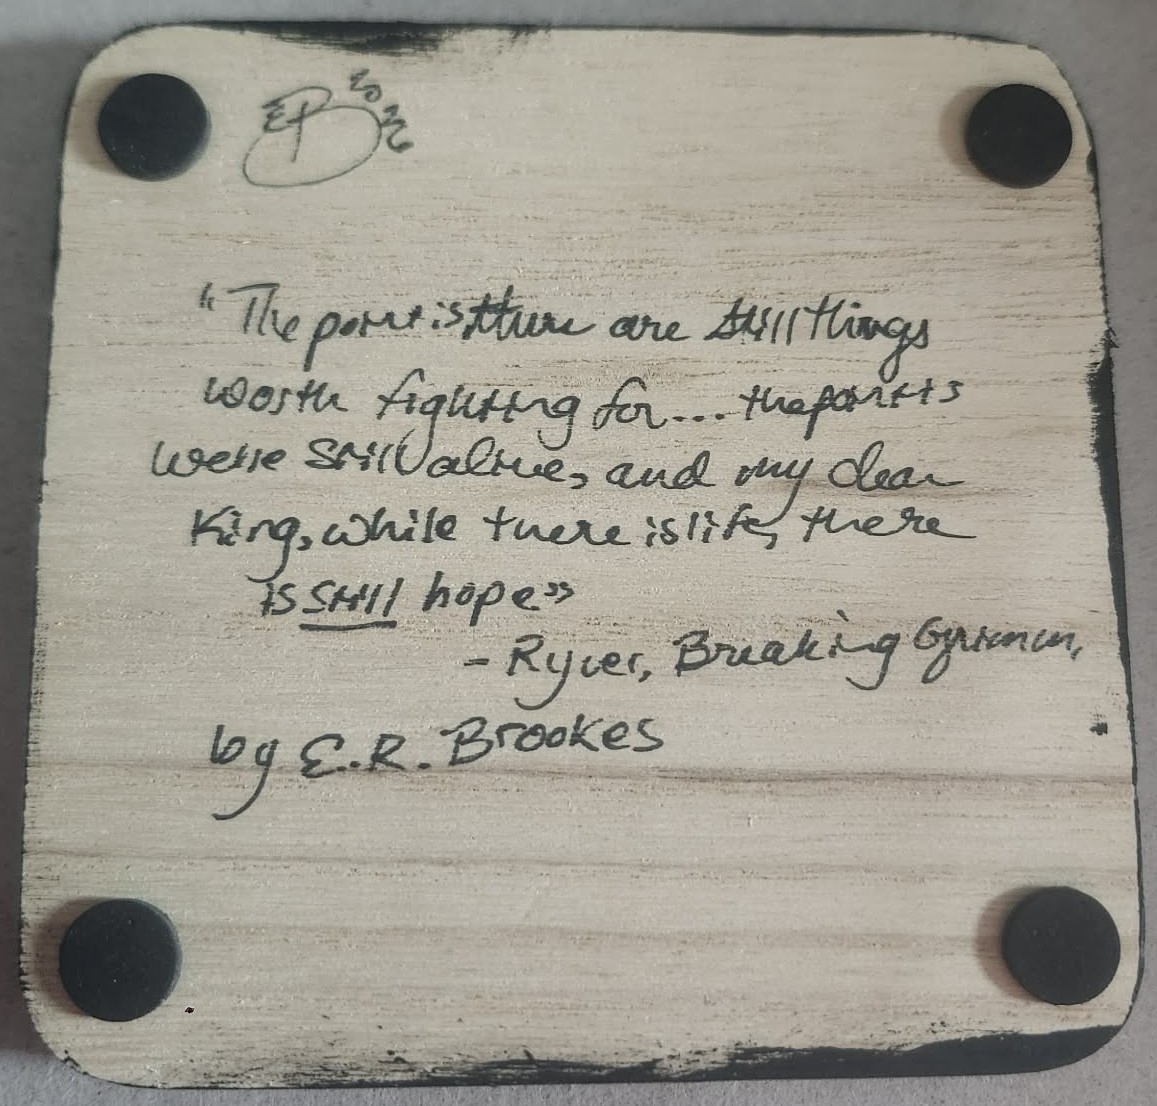 EB 2026
"The point is there are still things
worth fighting for... the point is
we're still alive, and my dear
King, while there is life, there
is still hope"
- Ryver, Breaking
by E.R. Brookes